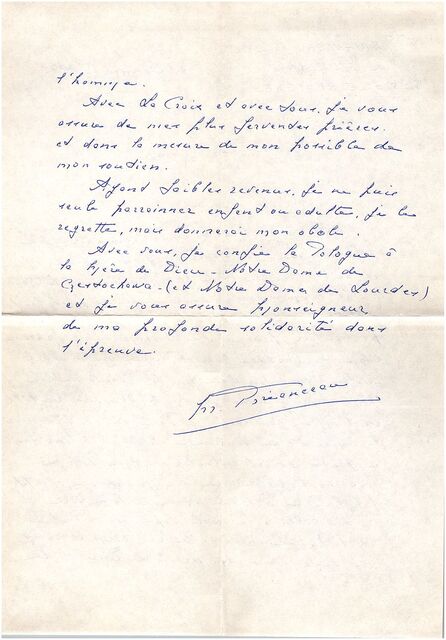 l'homme.
Avec La Croix et avec tous, je vous
assure de mes plus ferventes prières.
et dans la mesure de mon possible de
mon soutien.
Ayant faibles revenus, je ne puis
seule parrainer enfant ou adulte, je le
regrette, mais donnerai mon obole.
Avec vous, je confie la Pologne à
la Mère de Dieu - Notre Dame de
Czestochowa - (et Notre Dame de Lourdes)
et je vous assure Monseigneur
de ma profonde solidarité dans
l'épreuve.